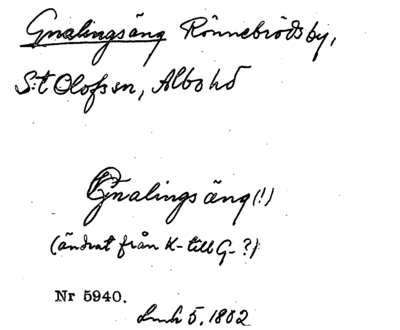 Gnalingsäng Rönnebrödsby,
S:t Olofs sn, Albo hd
Gnalingsäng (!)
(ändrat från K- till G- ?)
Nr 5940.
Lmh 5. 1802